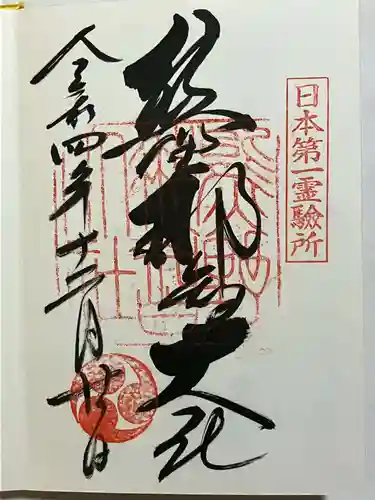 日本第一霊驗所
熊野那智大社
令和四年十二月廿日